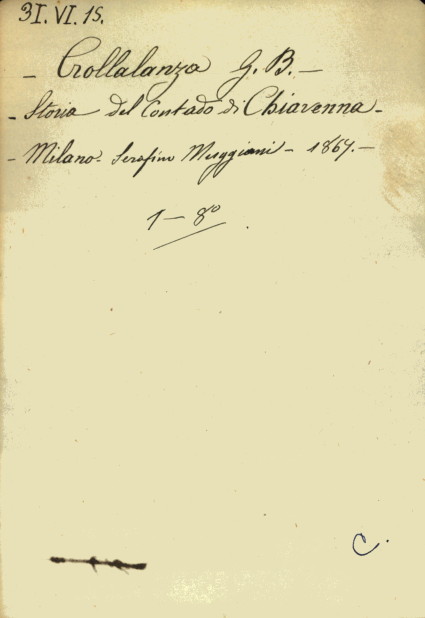 31.VI.15.
- Crollalanza G. B. -
- Storia del Contado di Chiavenna -
- Milano. Serafino Muggiani - 1867. -
1 - 8º
C.